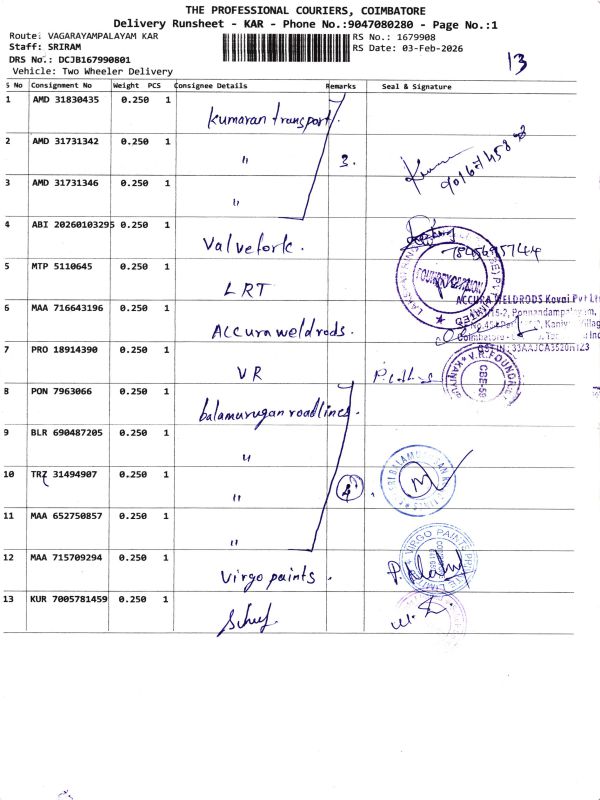 THE PROFESSIONAL COURIERS, COIMBATORE
Delivery Runsheet - KAR - Phone No.:9047080280 - Page No.:1
Route: VAGARAYAMPALAYAM KAR
RS No.: 1679908
Staff: SRIRAM
RS Date: 03-Feb-2026
DRS No.: DCJB167990801
13
Vehicle: Two Wheeler Delivery
S No Consignment No Weight PCS Consignee Details Remarks Seal & Signature
1 AMD 31830435 0.250 1 Kumaran transport.
2 AMD 31731342 0.250 1 " 3.
3 AMD 31731346 0.250 1 "
4 ABI 20260103295 0.250 1 Valvetork.
5 MTP 5110645 0.250 1 LRT
ACCURA WELDRODS Kovai Pvt Lt
6 MAA 716643196 0.250 1 Accura weldrods.
GSTIN: 33AAJCA3520R1Z3
7 PRO 18914390 0.250 1 VR
V.R. FOUNDR
8 PON 7963066 0.250 1 balamurugan roadlines.
9 BLR 690487205 0.250 1 "
10 TRZ 31494907 0.250 1 " 4
11 MAA 652750857 0.250 1 "
12 MAA 715709294 0.250 1 Virgo paints.
VIRGO PAINTS
13 KUR 7005781459 0.250 1